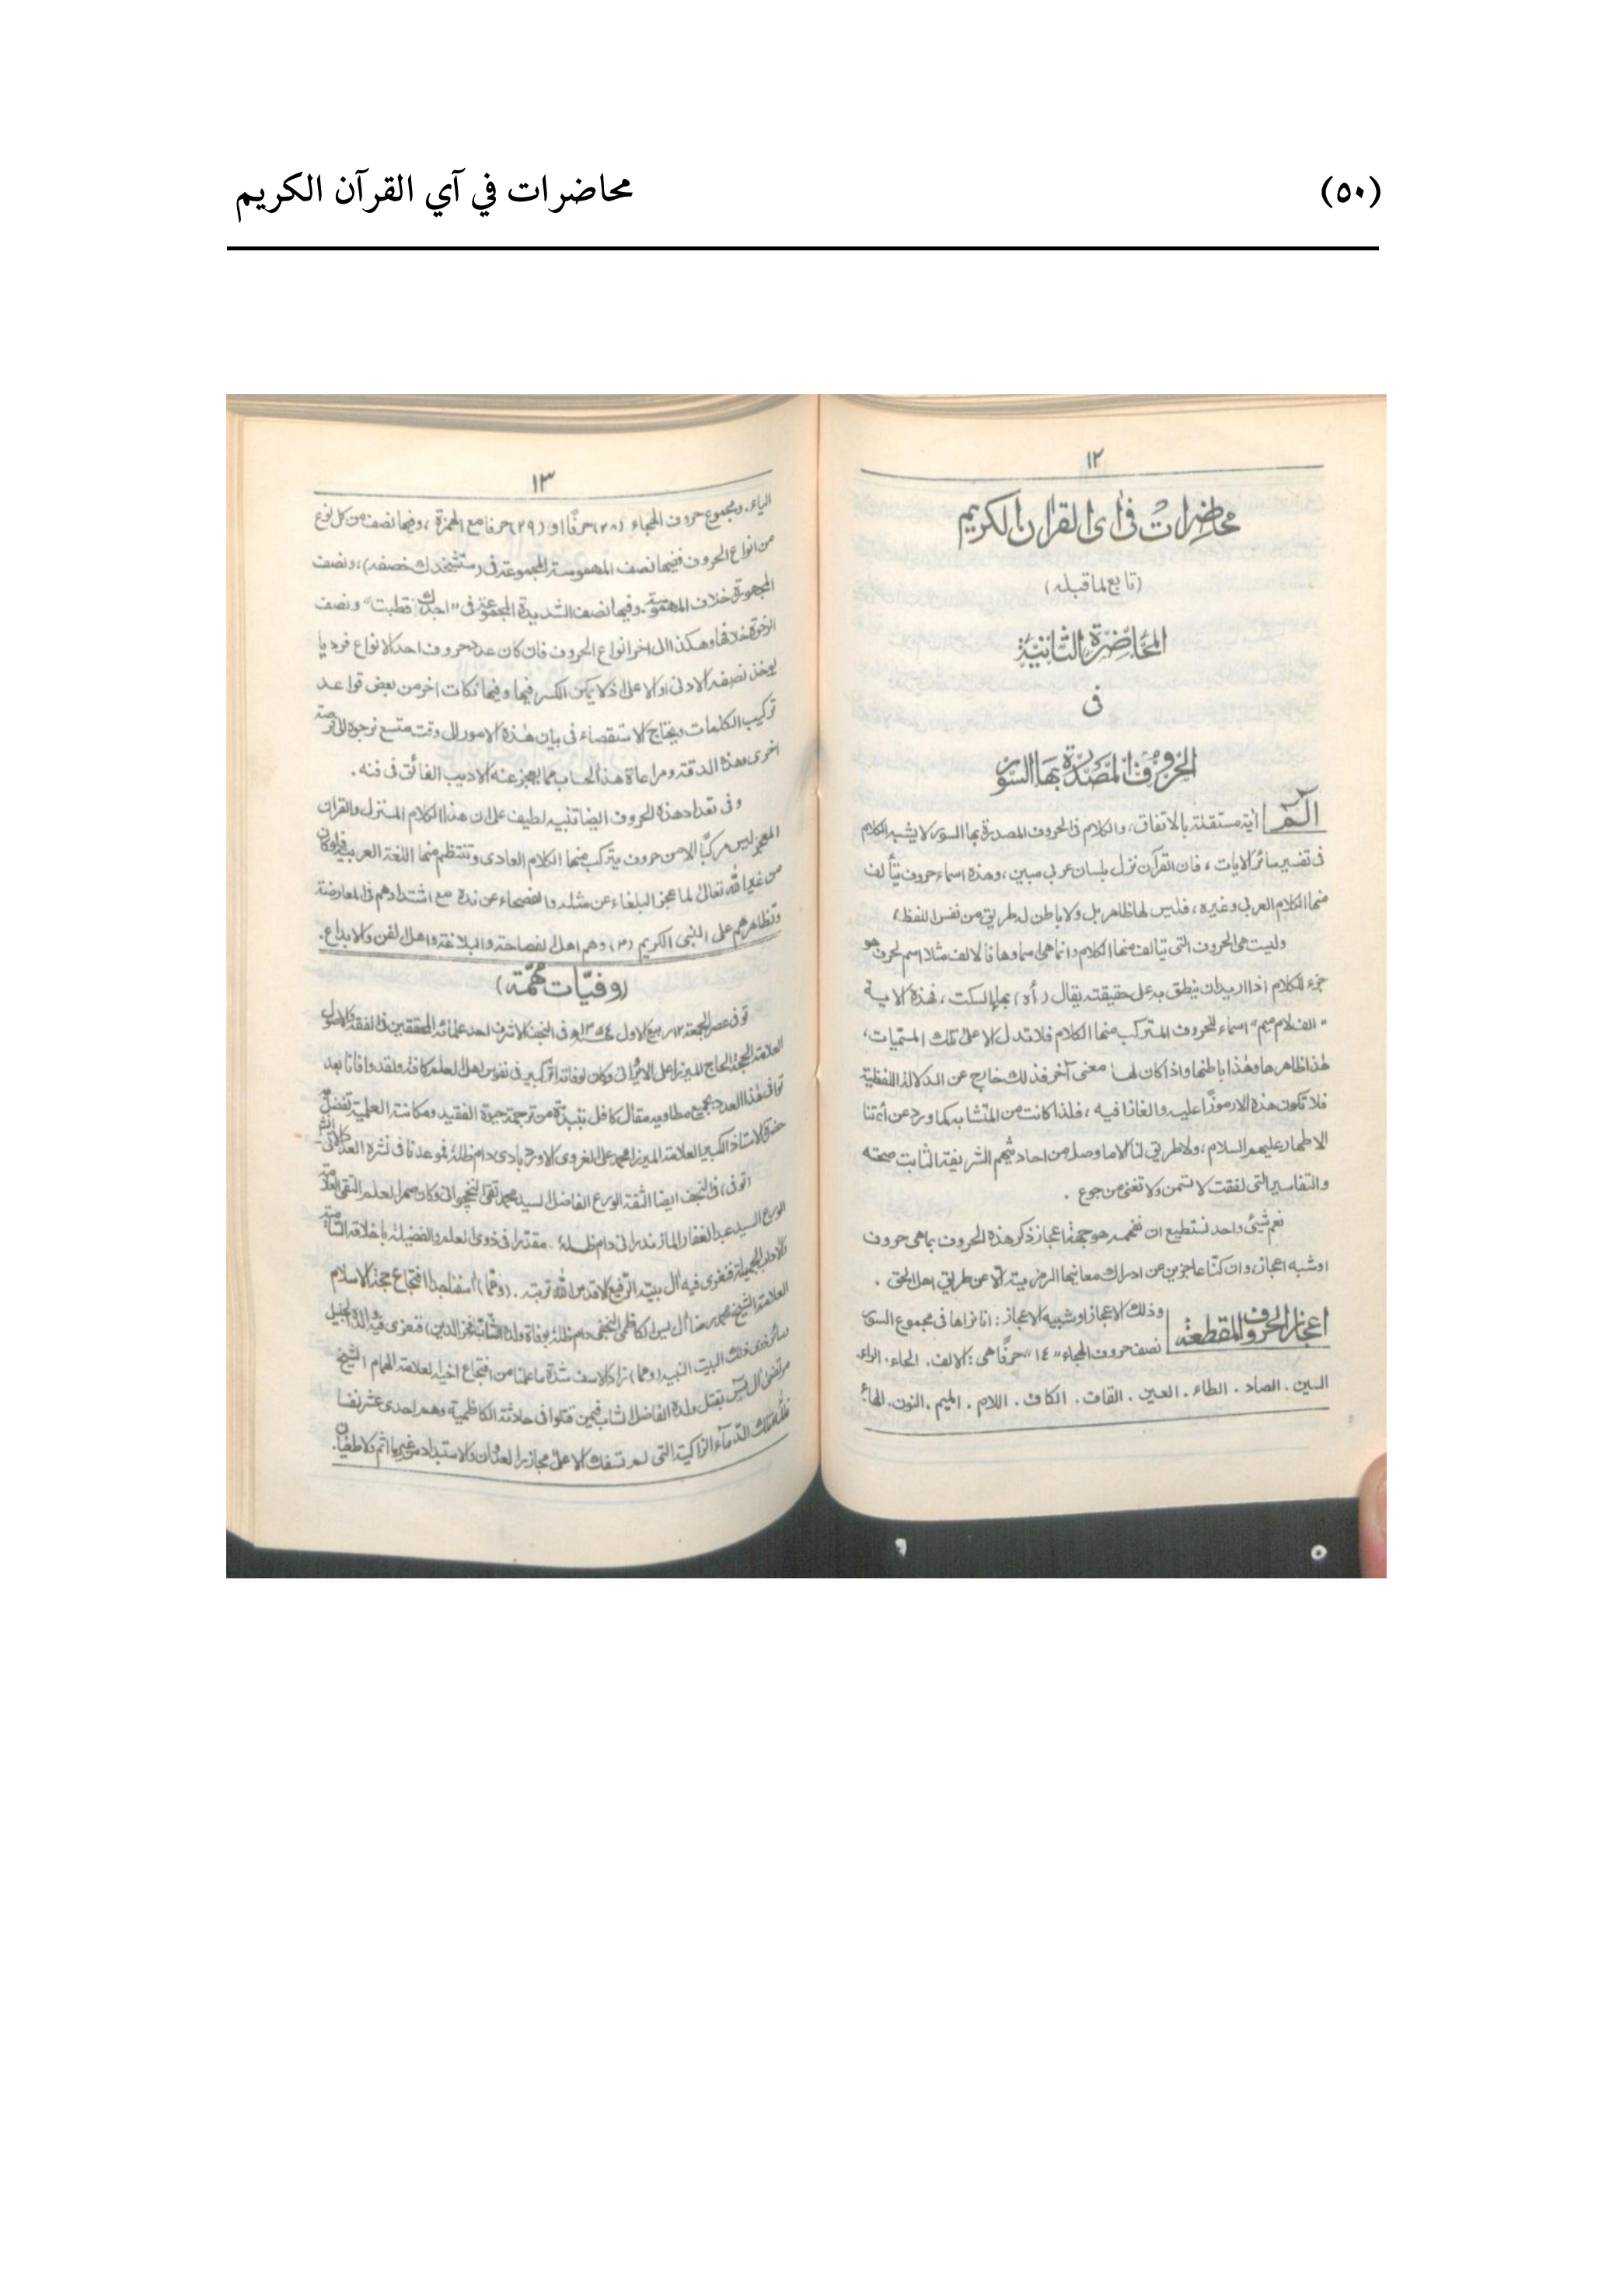 (٥٠)
محاضرات في آي القرآن الكريم
١٢
محاضرات في آى القرآن الكريم
(تابع لما قبله)
المحاضرة الثانية
في
الحروف المصدرة بها السور
الٓمٓ آية مستقلة بالاتفاق، والكلام في الحروف المصدرة بها السور لا يشبه الكلام
في تفسير سائر الايات، فان القرآن نزل بلسان عربي مبين، وهذه اسماء حروف يتألف
منها الكلام العربي وغيره، فليس لها ظاهر بل ولا باطن له طريق من نفس اللفظ،
وليست هي الحروف التي يتالف منها الكلام وانما هي اسماؤها فالالف مثلا اسم لحرف هو
جزء الكلام اذا اريد ان ينطق به على حقيقته يقال (أه) بهاء السكت، فهذه الاية
"الف لام ميم" اسماء للحروف المتركب منها الكلام فلا تدل الا على تلك المسميات،
هذا ظاهرها وهذا باطنها واذا كان لها معنى آخر فذلك خارج عن الدلالة اللفظية
فلا تكون هذه الا رموزًا عليه والغازا فيه، فلذا كانت من المتشابه كما ورد عن أئمتنا
الاطهار عليهم السلام، ولا طريق لنا الا ما وصل من احاديثهم الشريفة الثابت صحته
والتفاسير التي لفقت لا تسمن ولا تغني من جوع .
نعم شيئ واحد نستطيع ان نفهمه هو جهة اعجاز ذكر هذه الحروف بما هي حروف
او شبه اعجاز، وان كنا عاجزين عن ادراك معانيها الرمزية الا عن طريق اهل الحق .
اعجاز الحروف المقطعة وذلك الاعجاز او شبيه الاعجاز: انا نراها في مجموع السور
نصف حروف الهجاء "١٤" حرفًا هي: الالف. الحاء. الراء.
السين. الصاد. الطاء. العين. القاف. الكاف. اللام. الميم. النون. الهاء
١٣
الياء. ومجموع حروف الهجاء (٢٨) حرفًا او (٢٩) حرفا مع الهمزة، وفيها نصف من كل نوع
من انواع الحروف ففيها نصف المهموسة المجموعة في (ستشحثك خصفه)، ونصف
المجهورة خلاف المهموسة. وفيها نصف الشديدة المجموعة في "اجدك قطبت" ونصف
الرخوة خلافها وهكذا الى اخر انواع الحروف فان كان عدد حروف احد الانواع فرديا
يؤخذ نصفه الادنى او الاعلى اذ لا يمكن الكسر فيها وفيها نكات اخر من بعض قواعد
تركيب الكلمات ويحتاج الاستقصاء في بيان هذه الامور الى وقت متسع نرجوه الى فرصة
اخرى وهذه الدقة ومراعاة هذا الحساب مما يعجز عنه الاديب الفائق في فنه.
وفي تعداد هذه الحروف ايضا تنبيه لطيف على ان هذا الكلام المنزل والقران
المعجز ليس مركبًا الا من حروف يتركب منها الكلام العادي وتنتظم منها اللغة العربية فلو كان
من غير الله تعالى لما عجز البلغاء عن مثله والفصحاء عن نده مع اشتدادهم في المعارضة
وتظاهرهم على النبي الكريم (ص) وهم اهل الفصاحة والبلاغة واهل الفن والابداع.
(وفيّات مهمّة)
توفي عصر الجمعة ١٢ ربيع الاول ١٣٥٤ في النجف الاشرف احد علمائه المحققين في الفقه والاصول
العلامة الحجة الحاج الميرزا علي الايرواني وكان لوفاته اثر كبير في نفوس اهل العلم كافة ولقد وافانا بعد
هذا العدد مقال كافل بنبذة من ترجمة حياة الفقيد ومكانته العلمية تفضل
حضرة الاستاذ الكبير العلامة الميرزا محمد علي الغروي الاوردبادي دام ظله فموعدنا في نشره العدد الآتي
(توفي) في النجف ايضا الثقة الورع الفاضل السيد محمد تقي النخجواني وكان صهر العلم التقي
الورع السيد عبد الغفار المازندراني دام ظله. مقدرا في ذوي العلم والفضيلة باخلاقه السامية
والاداب الجميلة فنعزي فيه آل بيته الرفيع قدس الله تربته. (وممّا) اسفنا جدا افتجاع حجة الاسلام
العلامة الشيخ محمد رضا آل يس الكاظمي النجفي دام ظله بوفاة ولده الشاب (عز الدين) فنعزي فيه والده الجليل
وسائر ذوي ذلك البيت النبيه (ومما) زاد الاسف شدة ما علمنا من افتجاع اخيه العلامة الهمام الشيخ
مرتضى آل يس بقتل ولده الفاضل الشاب فيمن قتلوا في حادثة الكاظمية وهم احدى عشر نفسا
فلله تلك الدماء الزاكية التي لم تسفك الا على مجازر العدوان والاستبداد من غير ما اثم ولا طغيان.